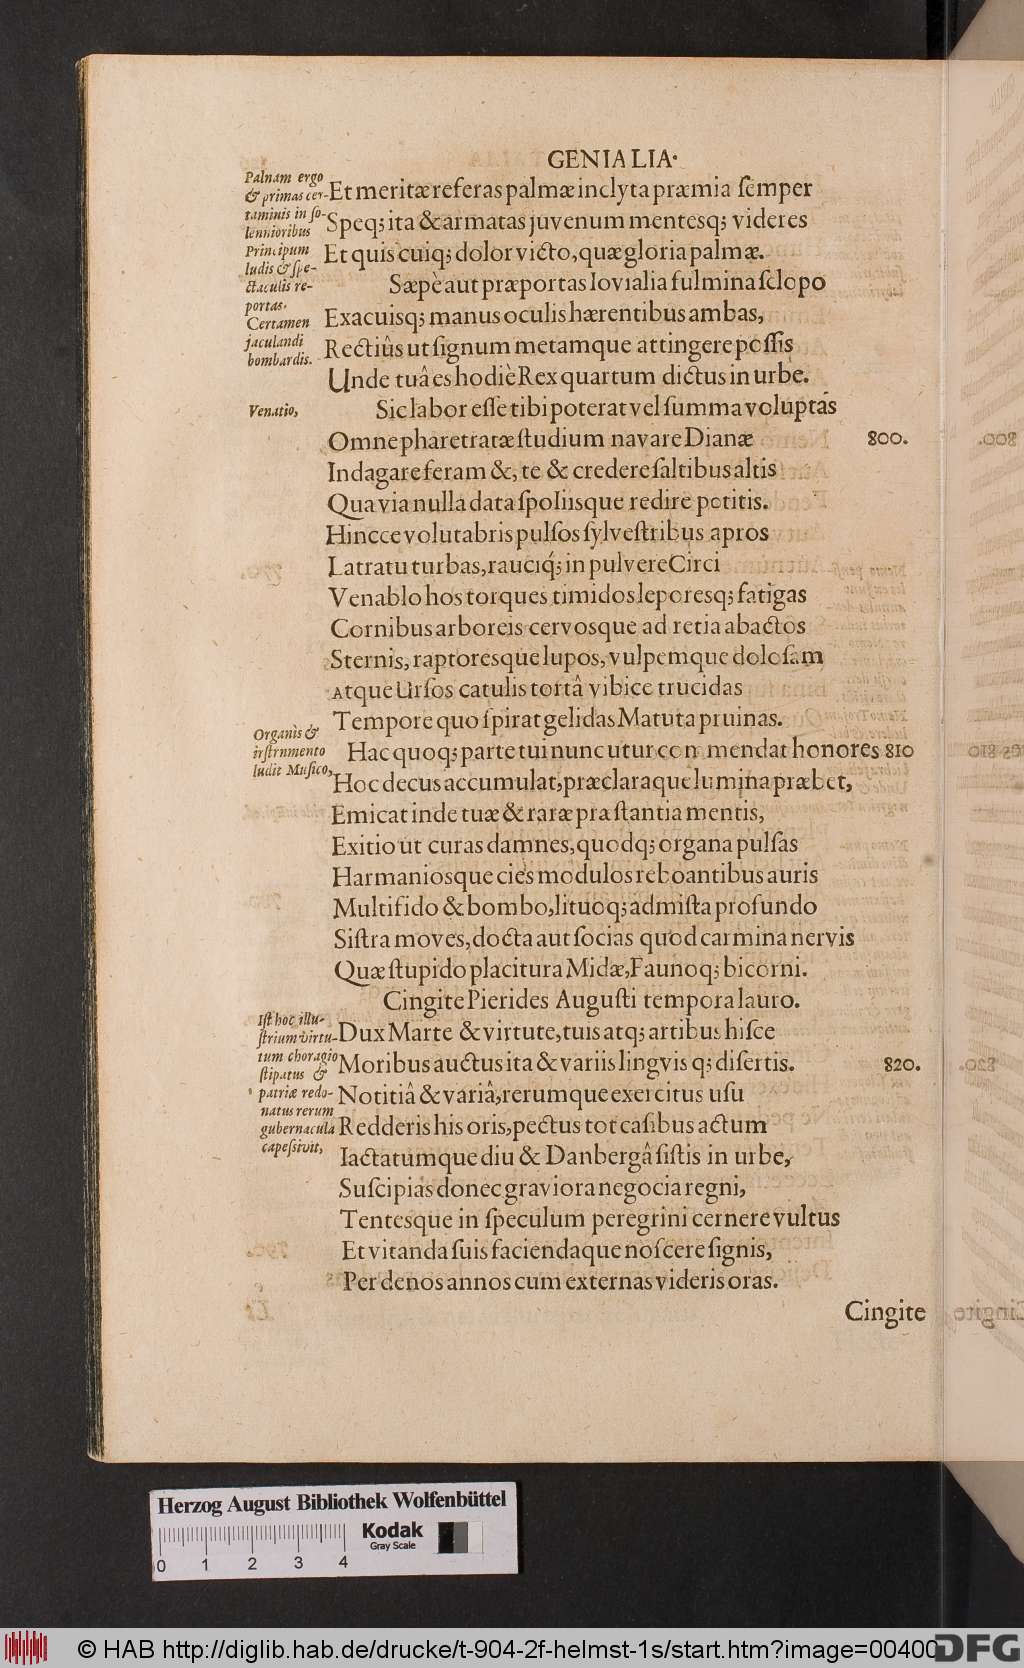 GENIALIA·
Palnam ergo
& primas cer-
taminis in ſo-
lennioribus
Principum
ludis & ſpe-
ctaculis re-
portas.
Et meritæ referas palmæ inclyta præmia ſemper
Speq; ita & armatas juvenum mentesq; videres
Et quis cuiq; dolor victo, quæ gloria palmæ.
Sæpè aut præportas Iovialia fulmina ſclopo
Certamen
jaculandi
bombardis.
Exacuisq; manus oculis hærentibus ambas,
Rectiûs ut ſignum metamque attingere poſſis
Unde tuâ es hodiè Rex quartum dictus in urbe.
Venatio,
Sic labor eſſe tibi poterat vel ſumma voluptas
Omne pharetratæ ſtudium navare Dianæ 800.
Indagare feram &, te & credere ſaltibus altis
Qua via nulla data ſpoliisque redire potitis.
Hincce volutabris pulſos ſylveſtribus apros
Latratu turbas, rauciq́; in pulvere Circi
Venablo hos torques timidos leporesq; fatigas
Cornibus arboreis cervosque ad retia abactos
Sternis, raptoresque lupos, vulpemque doloſam
Atque Urſos catulis tortâ vibice trucidas
Tempore quo ſpirat gelidas Matuta pruinas.
Organis &
irſtrnmento
ludit Muſico,
Hac quoq; parte tui nunc utur commendat honores 810
Hoc decus accumulat, præclaraque lumina præbet,
Emicat inde tuæ & raræ præſtantia mentis,
Exitio ut curas damnes, quodq; organa pulſas
Harmaniosque ciès modulos reboantibus auris
Multifido & bombo, lituoq; admiſta profundo
Siſtra moves, docta aut ſocias quod carmina nervis
Quæ ſtupido placitura Midæ, Faunoq; bicorni.
Cingite Pierides Auguſti tempora lauro.
Iſt hoc illu-
ſtrium virtu-
tum choragio
ſtipatus &
patriæ redo-
natus rerum
gubernacula
capeſsivit,
Dux Marte & virtute, tuis atq; artibus hiſce
Moribus auctus ita & variis lingvis q; diſertis. 820.
Notitiâ & variâ, rerumque exercitus uſu
Redderis his oris, pectus tot caſibus actum
Iactatumque diu & Danbergâ ſiſtis in urbe,
Suſcipias donec graviora negocia regni,
Tentesque in ſpeculum peregrini cernere vultus
Et vitanda ſuis faciendaque noſcere ſignis,
Per denos annos cum externas videris oras.
Cingite
Herzog August Bibliothek Wolfenbüttel
Kodak
Gray Scale
0 1 2 3 4
© HAB http://diglib.hab.de/drucke/t-904-2f-helmst-1s/start.htm?image=00400
DFG